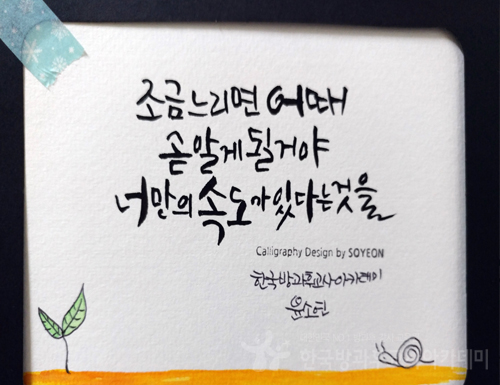 조금 느리면 어때
곧 알게 될거야
너만의 속도가 있다는 것을
Calligraphy Design by SOYEON
한국방과후교사아카데미
윤소연